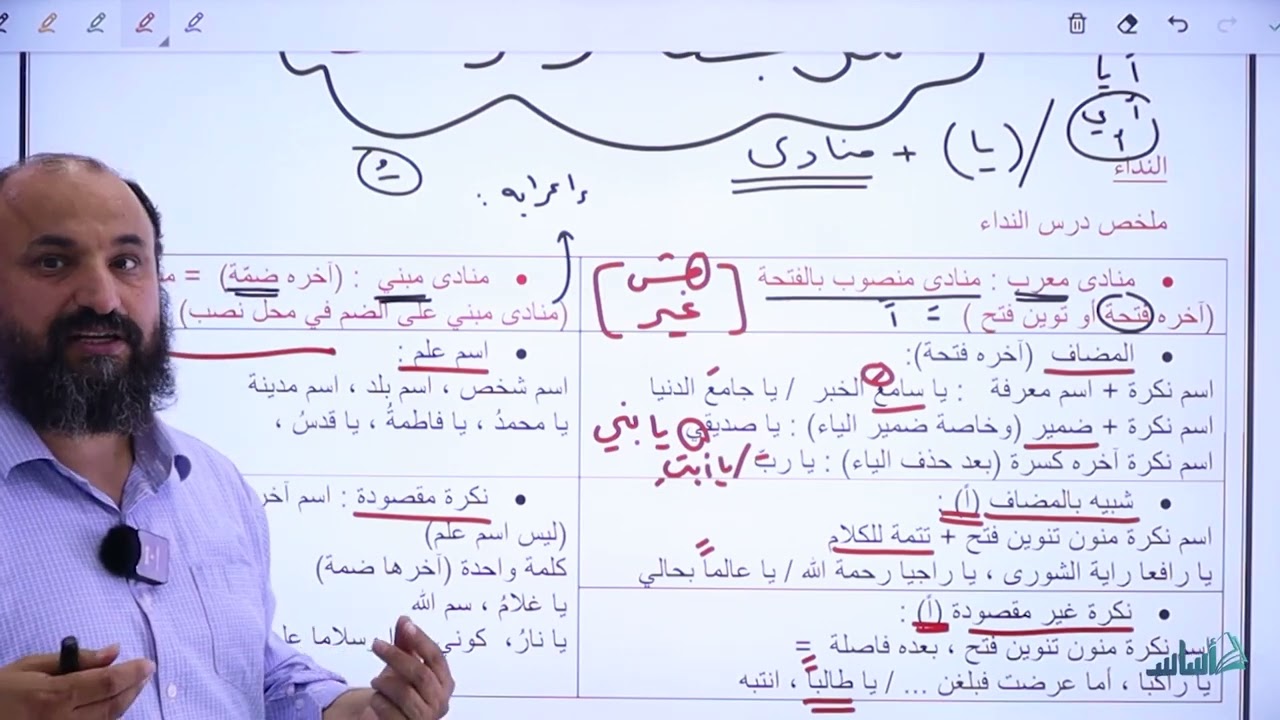 أيا
أي / (يا) + منادى
النداء
إعرابه :
ملخص درس النداء
• منادى معرب : منادى منصوب بالفتحة
(آخره فتحة أو تنوين فتح ) = اً
هش
غير
• المضاف (آخره فتحة):
اسم نكرة + اسم معرفة : يا سامعَ الخبر / يا جامعَ الدنيا
اسم نكرة + ضمير (وخاصة ضمير الياء) : يا صديقي يا بني
اسم نكرة آخره كسرة (بعد حذف الياء) : يا ربِّ / يا أبتِ
• شبيه بالمضاف (اً) :
اسم نكرة منون تنوين فتح + تتمة للكلام
يا رافعا راية الشورى ، يا راجيا رحمة الله / يا عالماً بحالي
• نكرة غير مقصودة (اً) :
اسم نكرة منون تنوين فتح ، بعده فاصلة =
يا راكبا ، أما عرضت فبلغن ... / يا طالباً ، انتبه
• منادى مبني : (آخره ضمّة) =
(منادى مبني على الضم في محل نصب)
• اسم علم :
اسم شخص ، اسم بلد ، اسم مدينة
يا محمدُ ، يا فاطمةُ ، يا قدسُ ،
• نكرة مقصودة : اسم
(ليس اسم علم)
كلمة واحدة (آخرها ضمة)
يا غلامُ ، سم الله
يا نارُ، كوني سلاما
أساس